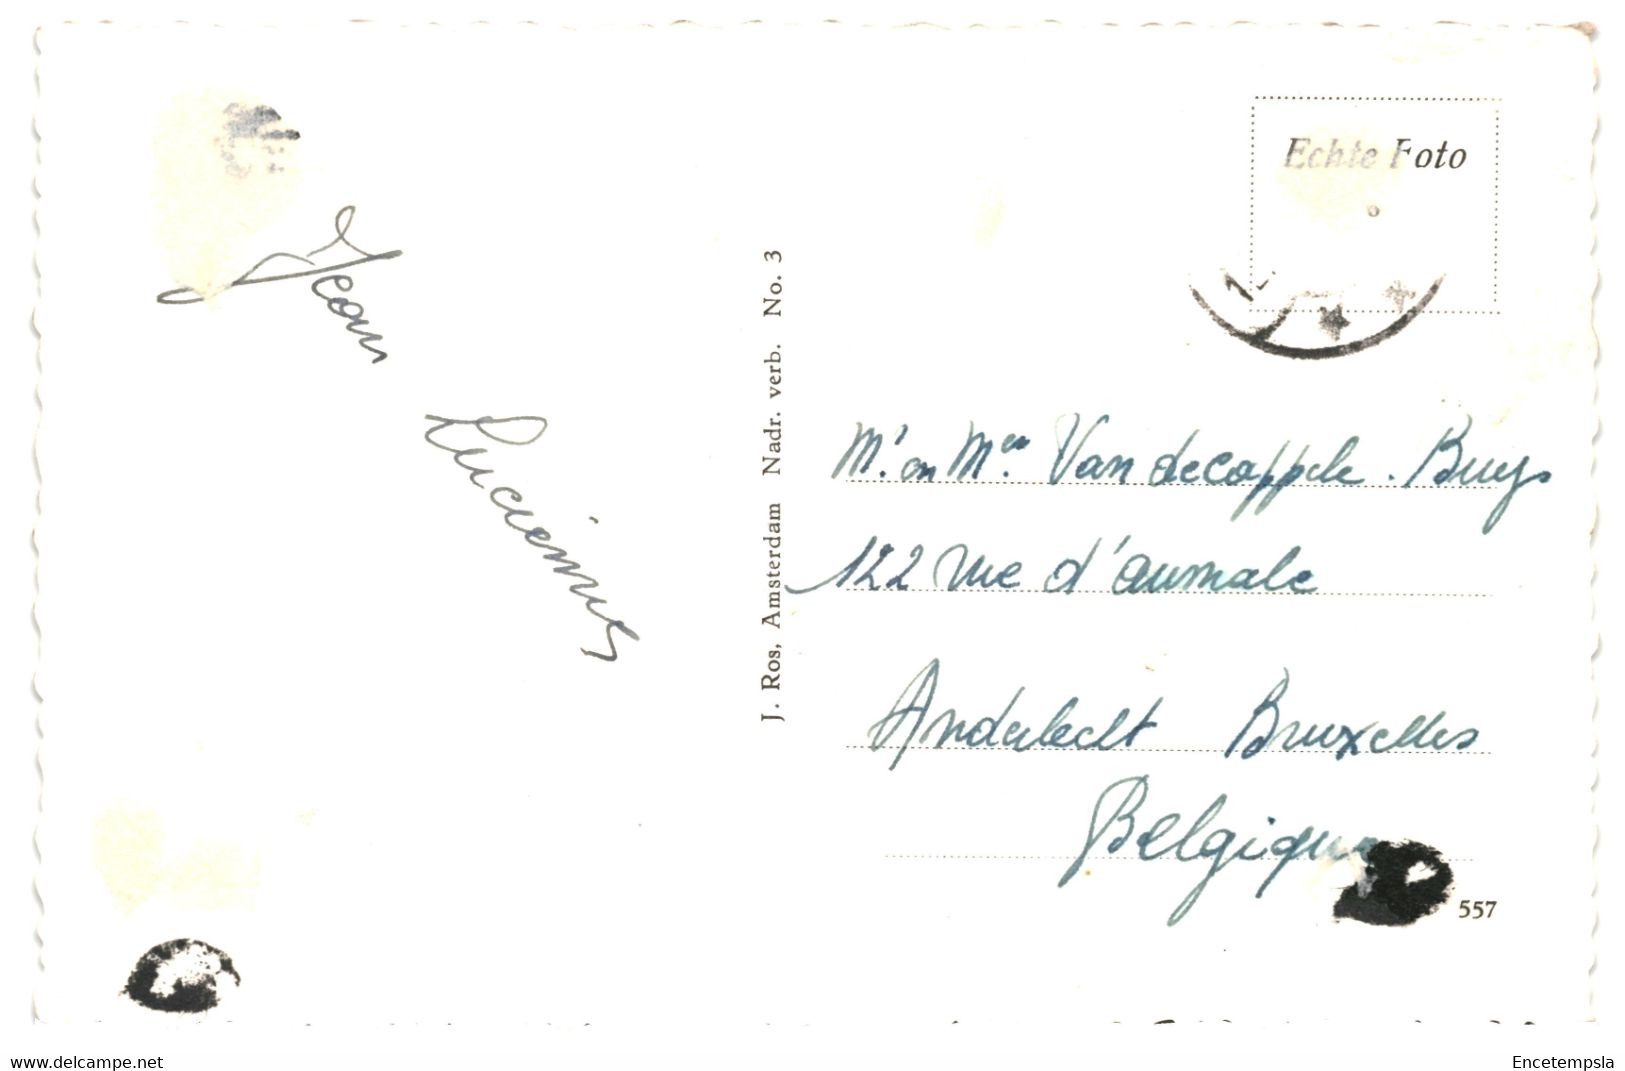 Jean
Lucienne
J. Ros, Amsterdam Nadr. verb. No. 3
Echte Foto
Mr. en Mev. Vandecappelle. Buys
122 rue d'aumale
Anderlecht Bruxelles
Belgique
557
www.delcampe.net
Encetempsla